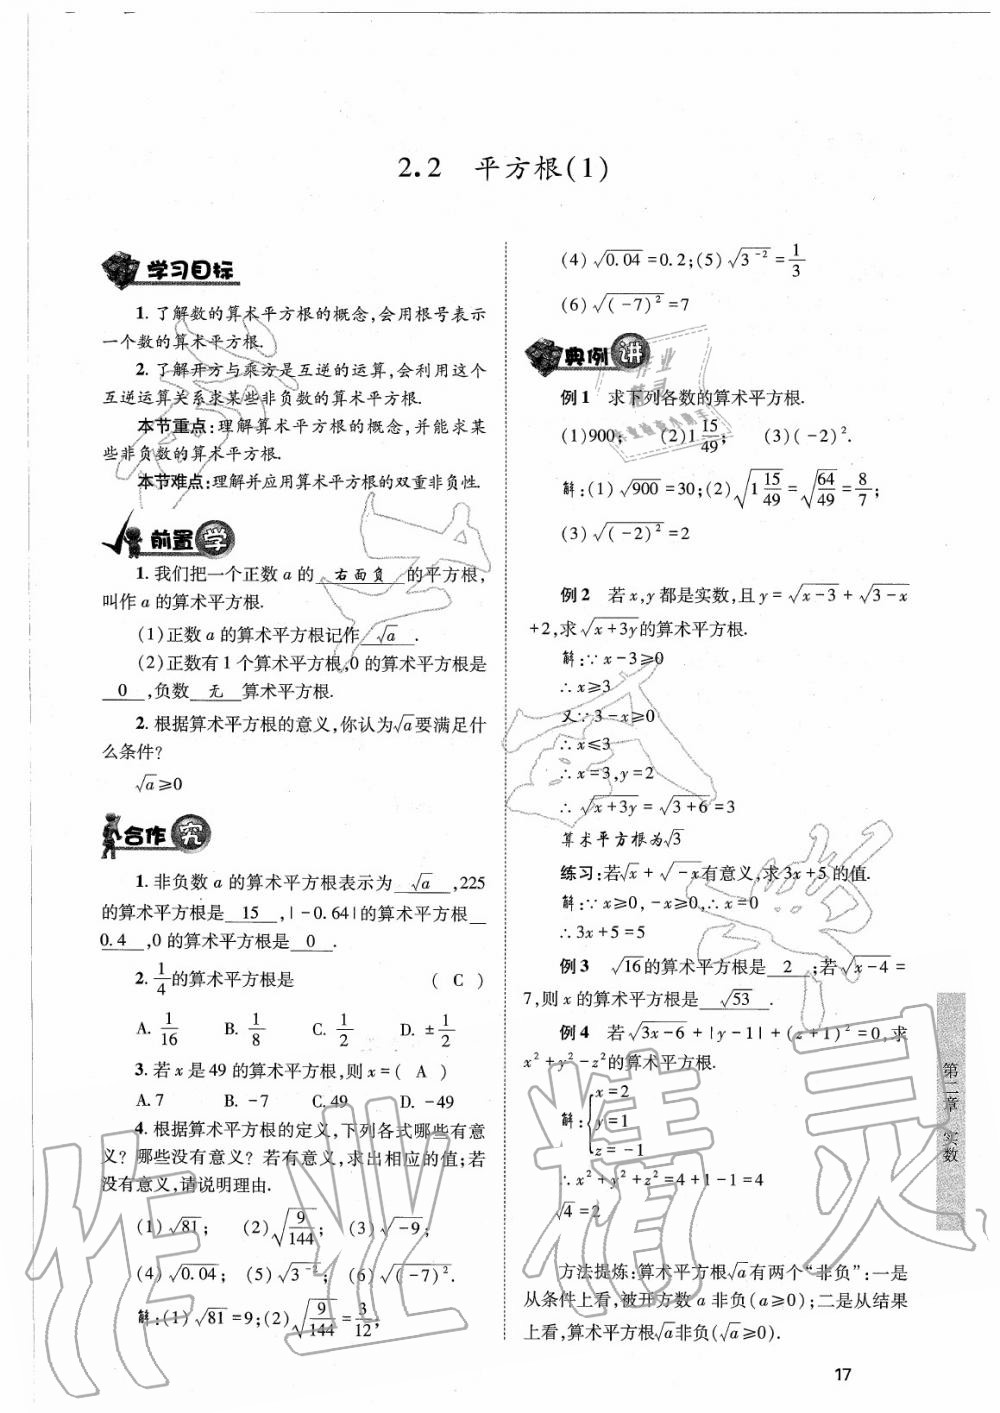 2.2 平方根(1)
学习目标
1. 了解数的算术平方根的概念,会用根号表示
一个数的算术平方根.
2. 了解开方与乘方是互逆的运算,会利用这个
互逆运算关系求某些非负数的算术平方根.
本节重点:理解算术平方根的概念,并能求某
些非负数的算术平方根.
本节难点:理解并应用算术平方根的双重非负性.
前置 学
1. 我们把一个正数 a 的 右面负 的平方根,
叫作 a 的算术平方根.
(1)正数 a 的算术平方根记作 √a .
(2)正数有 1 个算术平方根,0 的算术平方根是
0 ,负数 无 算术平方根.
2. 根据算术平方根的意义,你认为√a要满足什
么条件?
√a≥0
合作 究
1. 非负数 a 的算术平方根表示为 √a ,225
的算术平方根是 15 ,|-0.64|的算术平方根
0.4 ,0 的算术平方根是 0 .
2. 1/4的算术平方根是 ( C )
A. 1/16 B. 1/8 C. 1/2 D. ±1/2
3. 若 x 是 49 的算术平方根,则 x=( A )
A. 7 B. -7 C. 49 D. -49
4. 根据算术平方根的定义,下列各式哪些有意
义? 哪些没有意义? 若有意义,求出相应的值;若
没有意义,请说明理由.
(1)√81; (2)√(9/144); (3)√-9;
(4)√0.04; (5)√3⁻²; (6)√(-7)².
解:(1)√81=9;(2)√(9/144)=3/12;
(4)√0.04=0.2;(5)√3⁻²=1/3
(6)√(-7)²=7
典例 讲
例 1 求下列各数的算术平方根.
(1)900; (2)1 15/49; (3)(-2)².
解:(1)√900=30;(2)√(1 15/49)=√(64/49)=8/7;
(3)√(-2)²=2
例 2 若 x,y 都是实数,且 y=√(x-3)+√(3-x)
+2,求√(x+3y)的算术平方根.
解:∵x-3≥0
∴x≥3
又∵3-x≥0
∴x≤3
∴x=3,y=2
∴√(x+3y)=√(3+6)=3
算术平方根为√3
练习:若√x+√-x有意义,求 3x+5 的值.
解:∵x≥0,-x≥0,∴x=0
∴3x+5=5
例 3 √16的算术平方根是 2 ;若√(x-4)=
7,则 x 的算术平方根是 √53 .
例 4 若√(3x-6)+|y-1|+(z+1)²=0,求
x²+y²-z²的算术平方根.
解:{x=2
y=1
z=-1
∴x²+y²+z²=4+1-1=4
√4=2
方法提炼:算术平方根√a有两个“非负”:一是
从条件上看,被开方数 a 非负(a≥0);二是从结果
上看,算术平方根√a非负(√a≥0).
第二章 实数
17
作业精灵